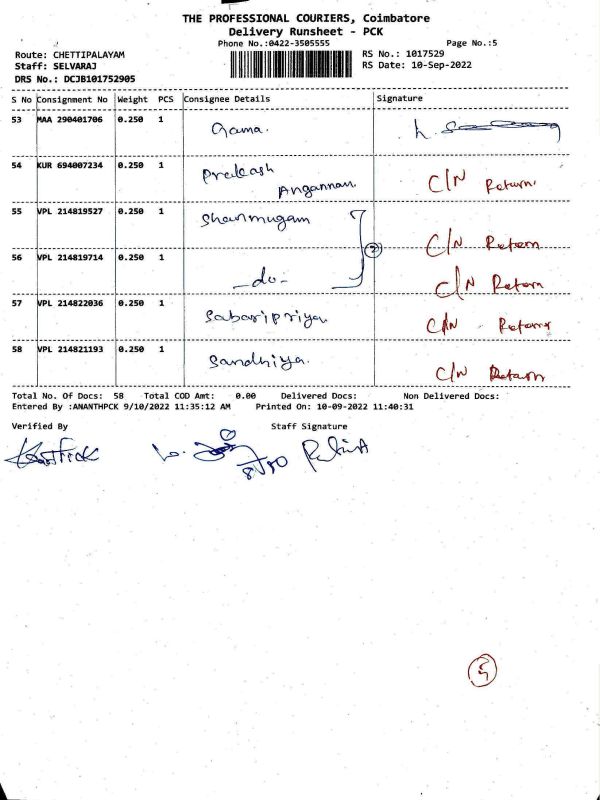 THE PROFESSIONAL COURIERS, Coimbatore
Delivery Runsheet - PCK
Phone No.:0422-3505555 Page No.:5
Route: CHETTIPALAYAM RS No.: 1017529
Staff: SELVARAJ RS Date: 10-Sep-2022
DRS No.: DCJB101752905
S No Consignment No Weight PCS Consignee Details Signature
53 MAA 290401706 0.250 1 Rama.
54 KUR 694007234 0.250 1 Prakash Angannan C/N Return
55 VPL 214819527 0.250 1 Shanmugam C/N Return
56 VPL 214819714 0.250 1 -do- C/N Return
2
57 VPL 214822036 0.250 1 Sabaripriya C/N Return
58 VPL 214821193 0.250 1 Sandhiya. C/N Return
Total No. Of Docs: 58 Total COD Amt: 0.00 Delivered Docs: Non Delivered Docs:
Entered By :ANANTHPCK 9/10/2022 11:35:12 AM Printed On: 10-09-2022 11:40:31
Verified By Staff Signature